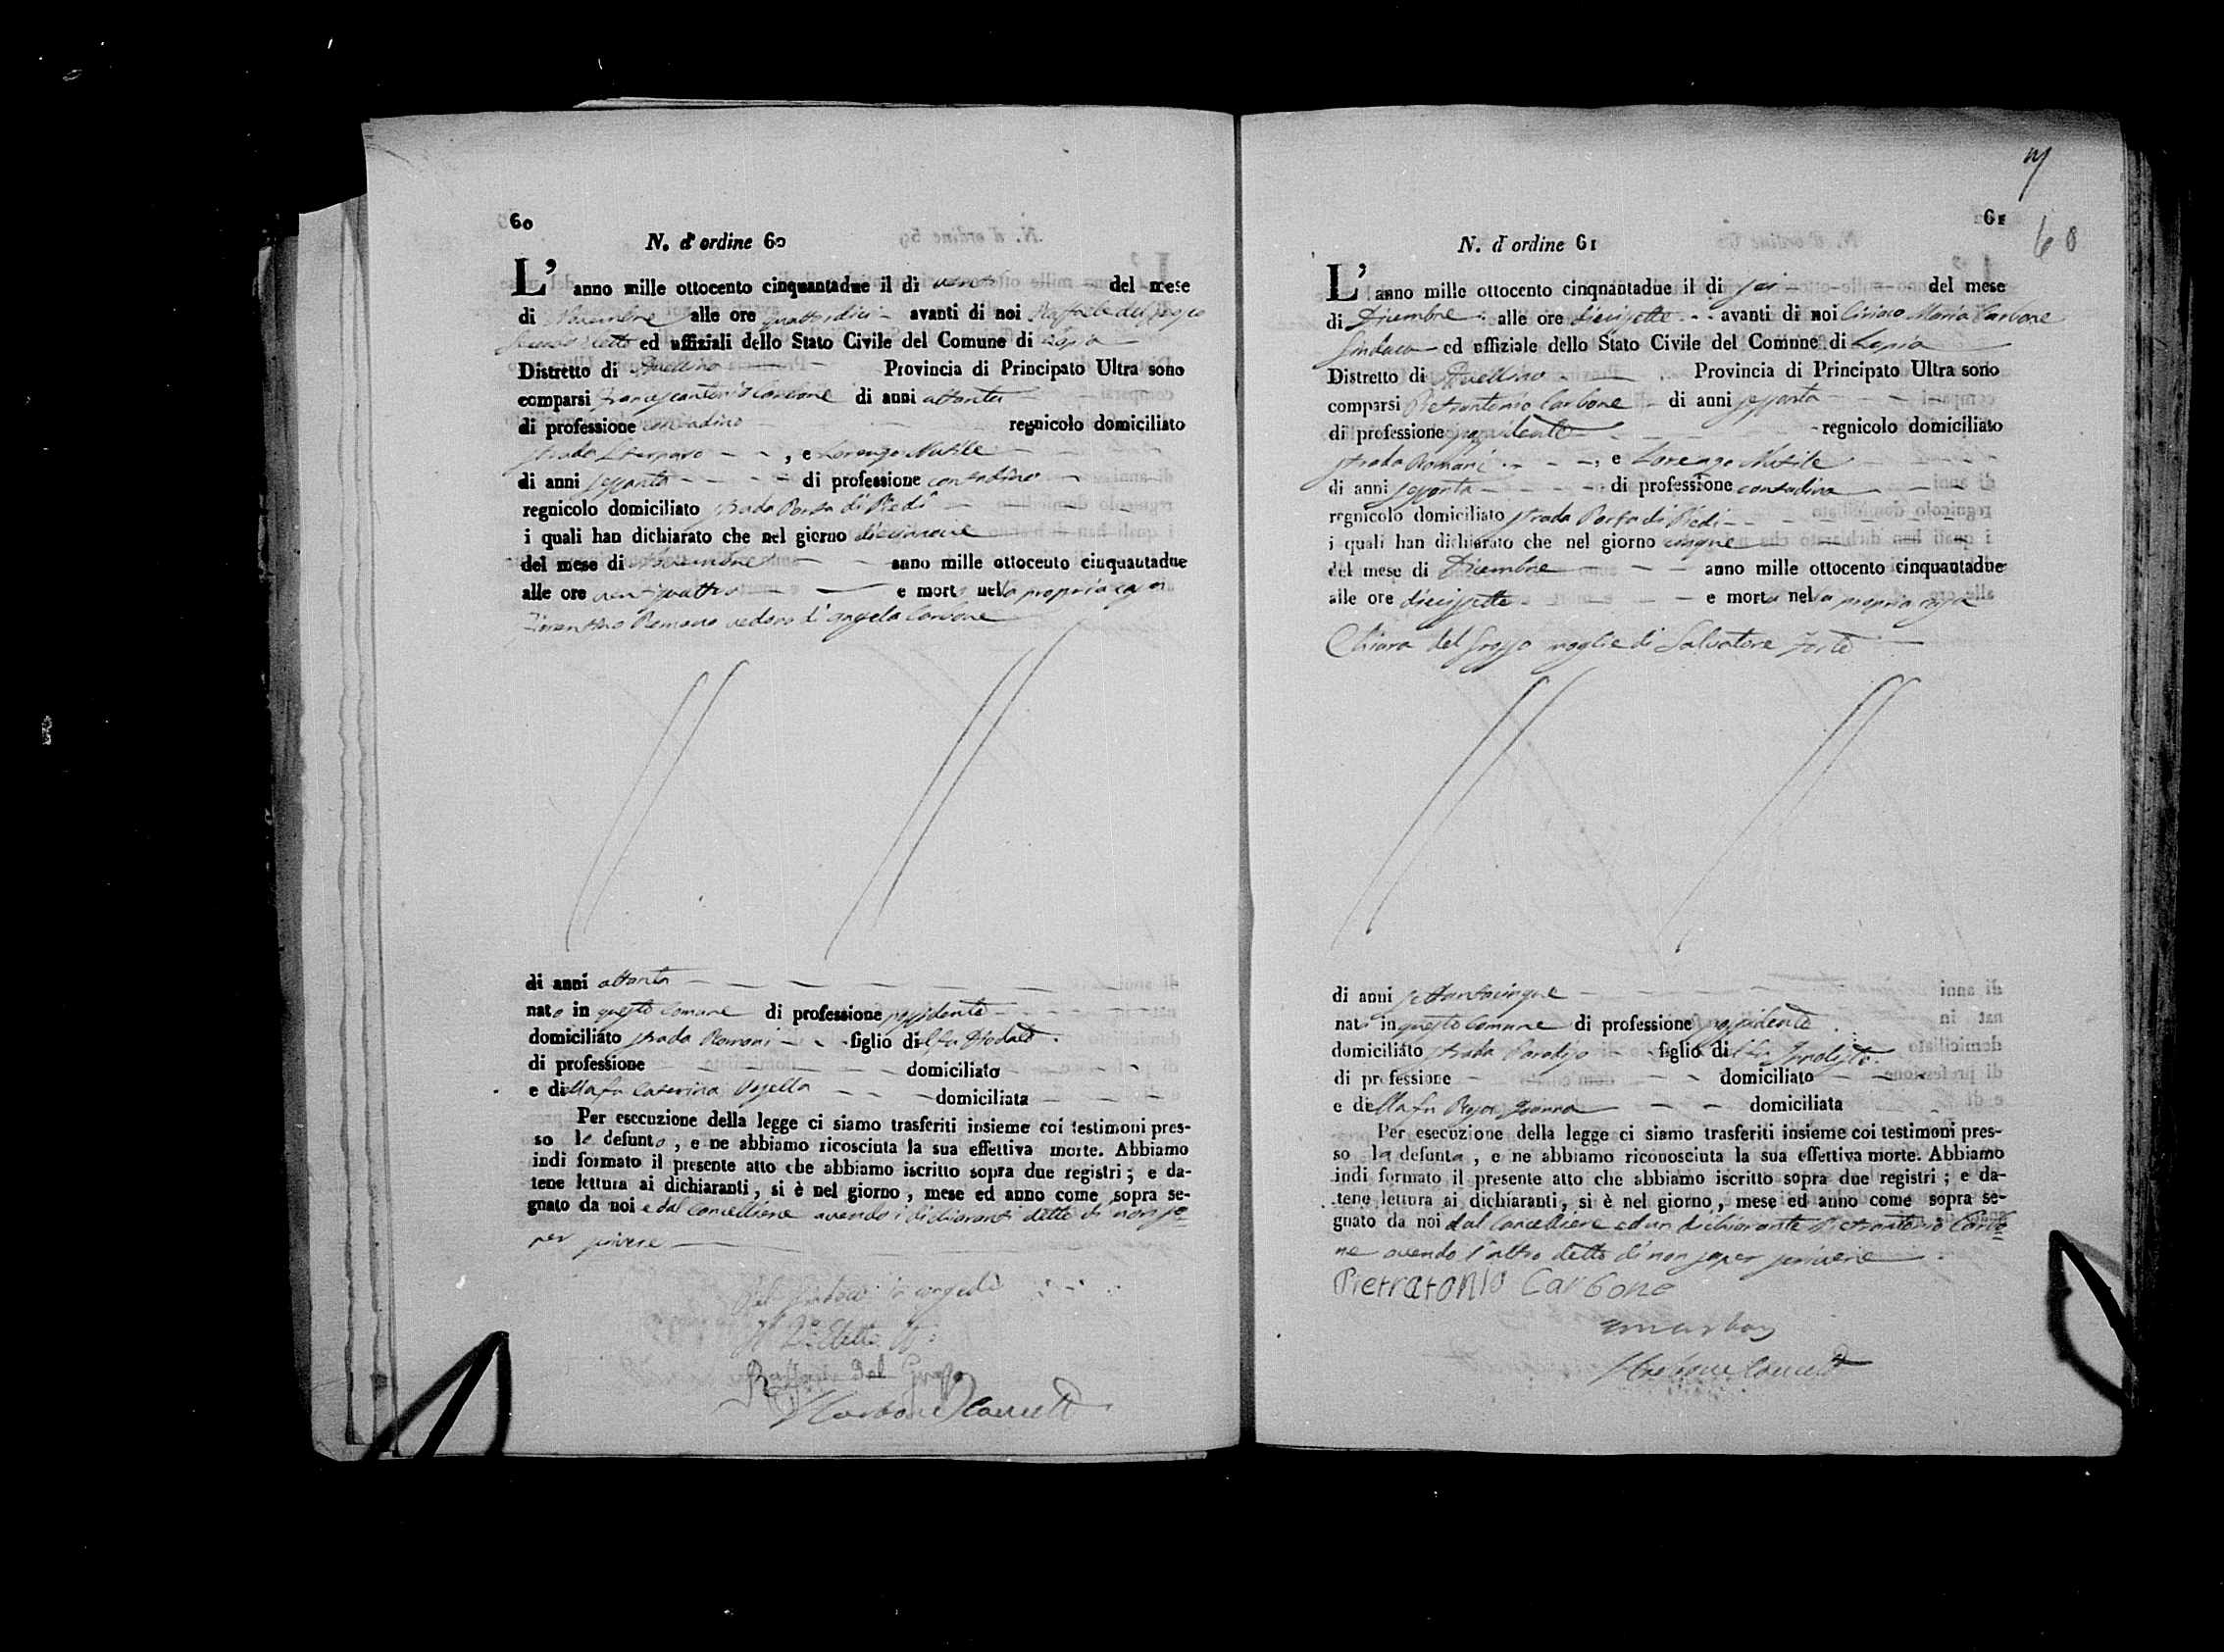 60
N. d'ordine 60
L'anno mille ottocento cinquantadue il di venti del mese
di Novembre alle ore quattordici avanti di noi Raffaele del Grosso
secondo Eletto ed uffiziali dello Stato Civile del Comune di Lapio
Distretto di Avellino Provincia di Principato Ultra sono
comparsi Francescantonio Carbone di anni ottanta
di professione contadino regnicolo domiciliato
strada , e Lorenzo Mutile
di anni sessanta di professione contadino
regnicolo domiciliato strada Porta di Piedi
i quali han dichiarato che nel giorno diecinove
del mese di Novembre anno mille ottocento cinquantadue
alle ore ventiquattro e morto nella propria casa
Fiorentino Romano vedovo d'Angela Carbone
di anni ottanta
nato in questo Comune di professione possidente
domiciliato strada Romani figlio del fu Diodato
di professione domiciliato
e della fu Caterina domiciliata
Per esecuzione della legge ci siamo trasferiti insieme coi testimoni pres-
so lo defunto, e ne abbiamo ricosciuta la sua effettiva morte. Abbiamo
indi formato il presente atto che abbiamo iscritto sopra due registri; e da-
tene lettura ai dichiaranti, si è nel giorno, mese ed anno come sopra se-
gnato da noi e dal Cancelliere avendo i dichiaranti detto di non sa=
per scrivere
Pel Sindaco in congedo
Il 2º Eletto
Raffaele del Grosso
Carbone Cancell
61
60
N. d'ordine 61
L'anno mille ottocento cinquantadue il di sei del mese
di Dicembre alle ore diecisette avanti di noi Ciriaco Maria Carbone
Sindaco ed uffiziale dello Stato Civile del Comune di Lapio
Distretto di Avellino Provincia di Principato Ultra sono
comparsi Pietrantonio Carbone di anni sessanta
di professione possidente regnicolo domiciliato
strada Romani , e Lorenzo Mutile
di anni sessanta di professione contadino
regnicolo domiciliato strada Porta di Piedi
i quali han dichiarato che nel giorno cinque
del mese di Dicembre anno mille ottocento cinquantadue
alle ore diecisette e morta nella propria casa
Chiara del Grosso moglie di Salvatore Forte
di anni settantacinque
nata in questo Comune di professione possidente
domiciliato strada Paradiso figlia del fu
di professione domiciliato
e della fu Rosa domiciliata
Per esecuzione della legge ci siamo trasferiti insieme coi testimoni pres-
so la defunta, e ne abbiamo riconosciuta la sua effettiva morte. Abbiamo
indi formato il presente atto che abbiamo iscritto sopra due registri; e da-
tene lettura ai dichiaranti, si è nel giorno, mese ed anno come sopra se-
gnato da noi dal Cancelliere ed un dichiarante Pietrantonio Carbo=
ne avendo l'altro detto di non saper scrivere
Pietratonio Carbone
Carbone Cancell